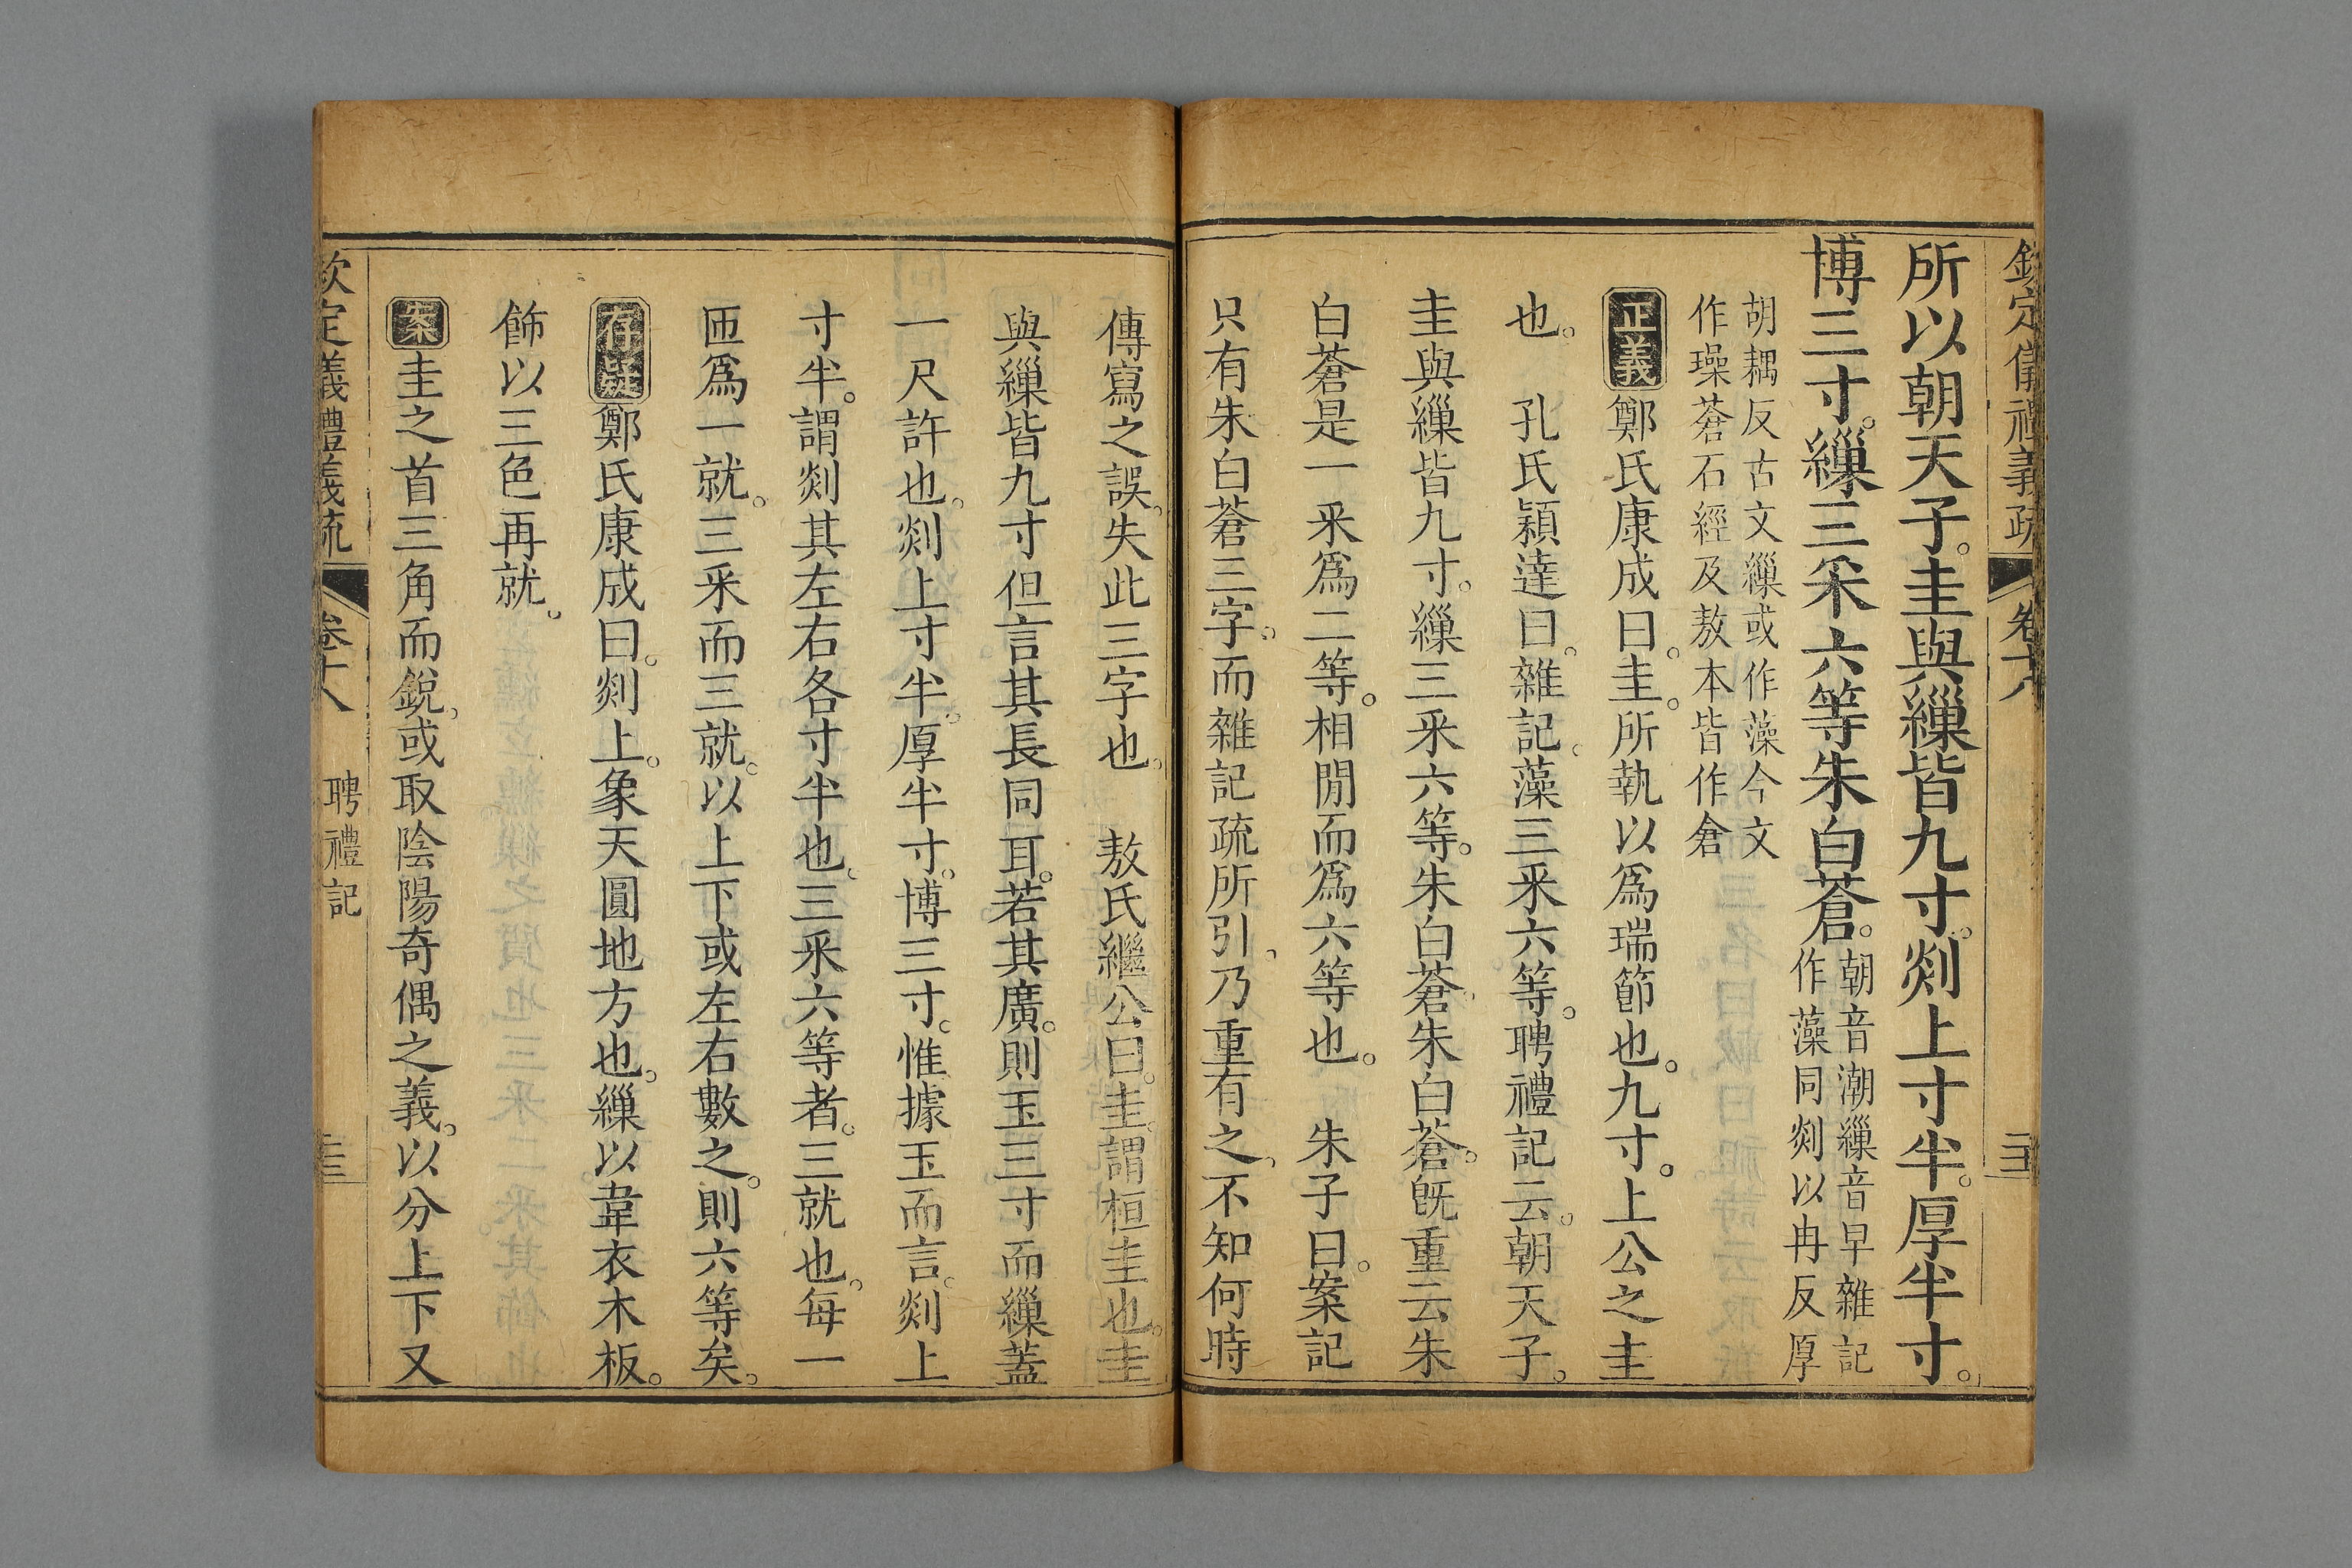 欽定儀禮義疏 卷十八
所以朝天子。圭與繅皆九寸。剡上寸半。厚半寸。
博三寸。繅三采六等朱白蒼。朝音潮繅音早雜記
作藻同剡以冉反厚
胡耦反古文繅或作藻今文
作璪蒼石經及敖本皆作倉
正義鄭氏康成曰。圭。所執以爲瑞節也。九寸。上公之圭
也。 孔氏穎達曰。雜記。藻三采六等。聘禮記云。朝天子。
圭與繅皆九寸。繅三采六等。朱白蒼。朱白蒼。既重云朱
白蒼是一采爲二等。相閒而爲六等也。 朱子曰。案記
只有朱白蒼三字。而雜記疏所引。乃重有之。不知何時
傳寫之誤。失此三字也。 敖氏繼公曰。圭。謂桓圭也。圭
與繅皆九寸但言其長同耳。若其廣。則玉三寸而繅蓋
一尺許也。剡上寸半。厚半寸。博三寸。惟據玉而言。剡上
寸半。謂剡其左右各寸半也。三采六等者。三就也。每一
匝爲一就。三采而三就。以上下或左右數之。則六等矣。
存疑鄭氏康成曰。剡上。象天圓地方也。繅以韋衣木板。
飾以三色再就。
案圭之首三角而銳。或取陰陽奇偶之義。以分上下又
欽定義禮義疏 卷十八 聘禮記